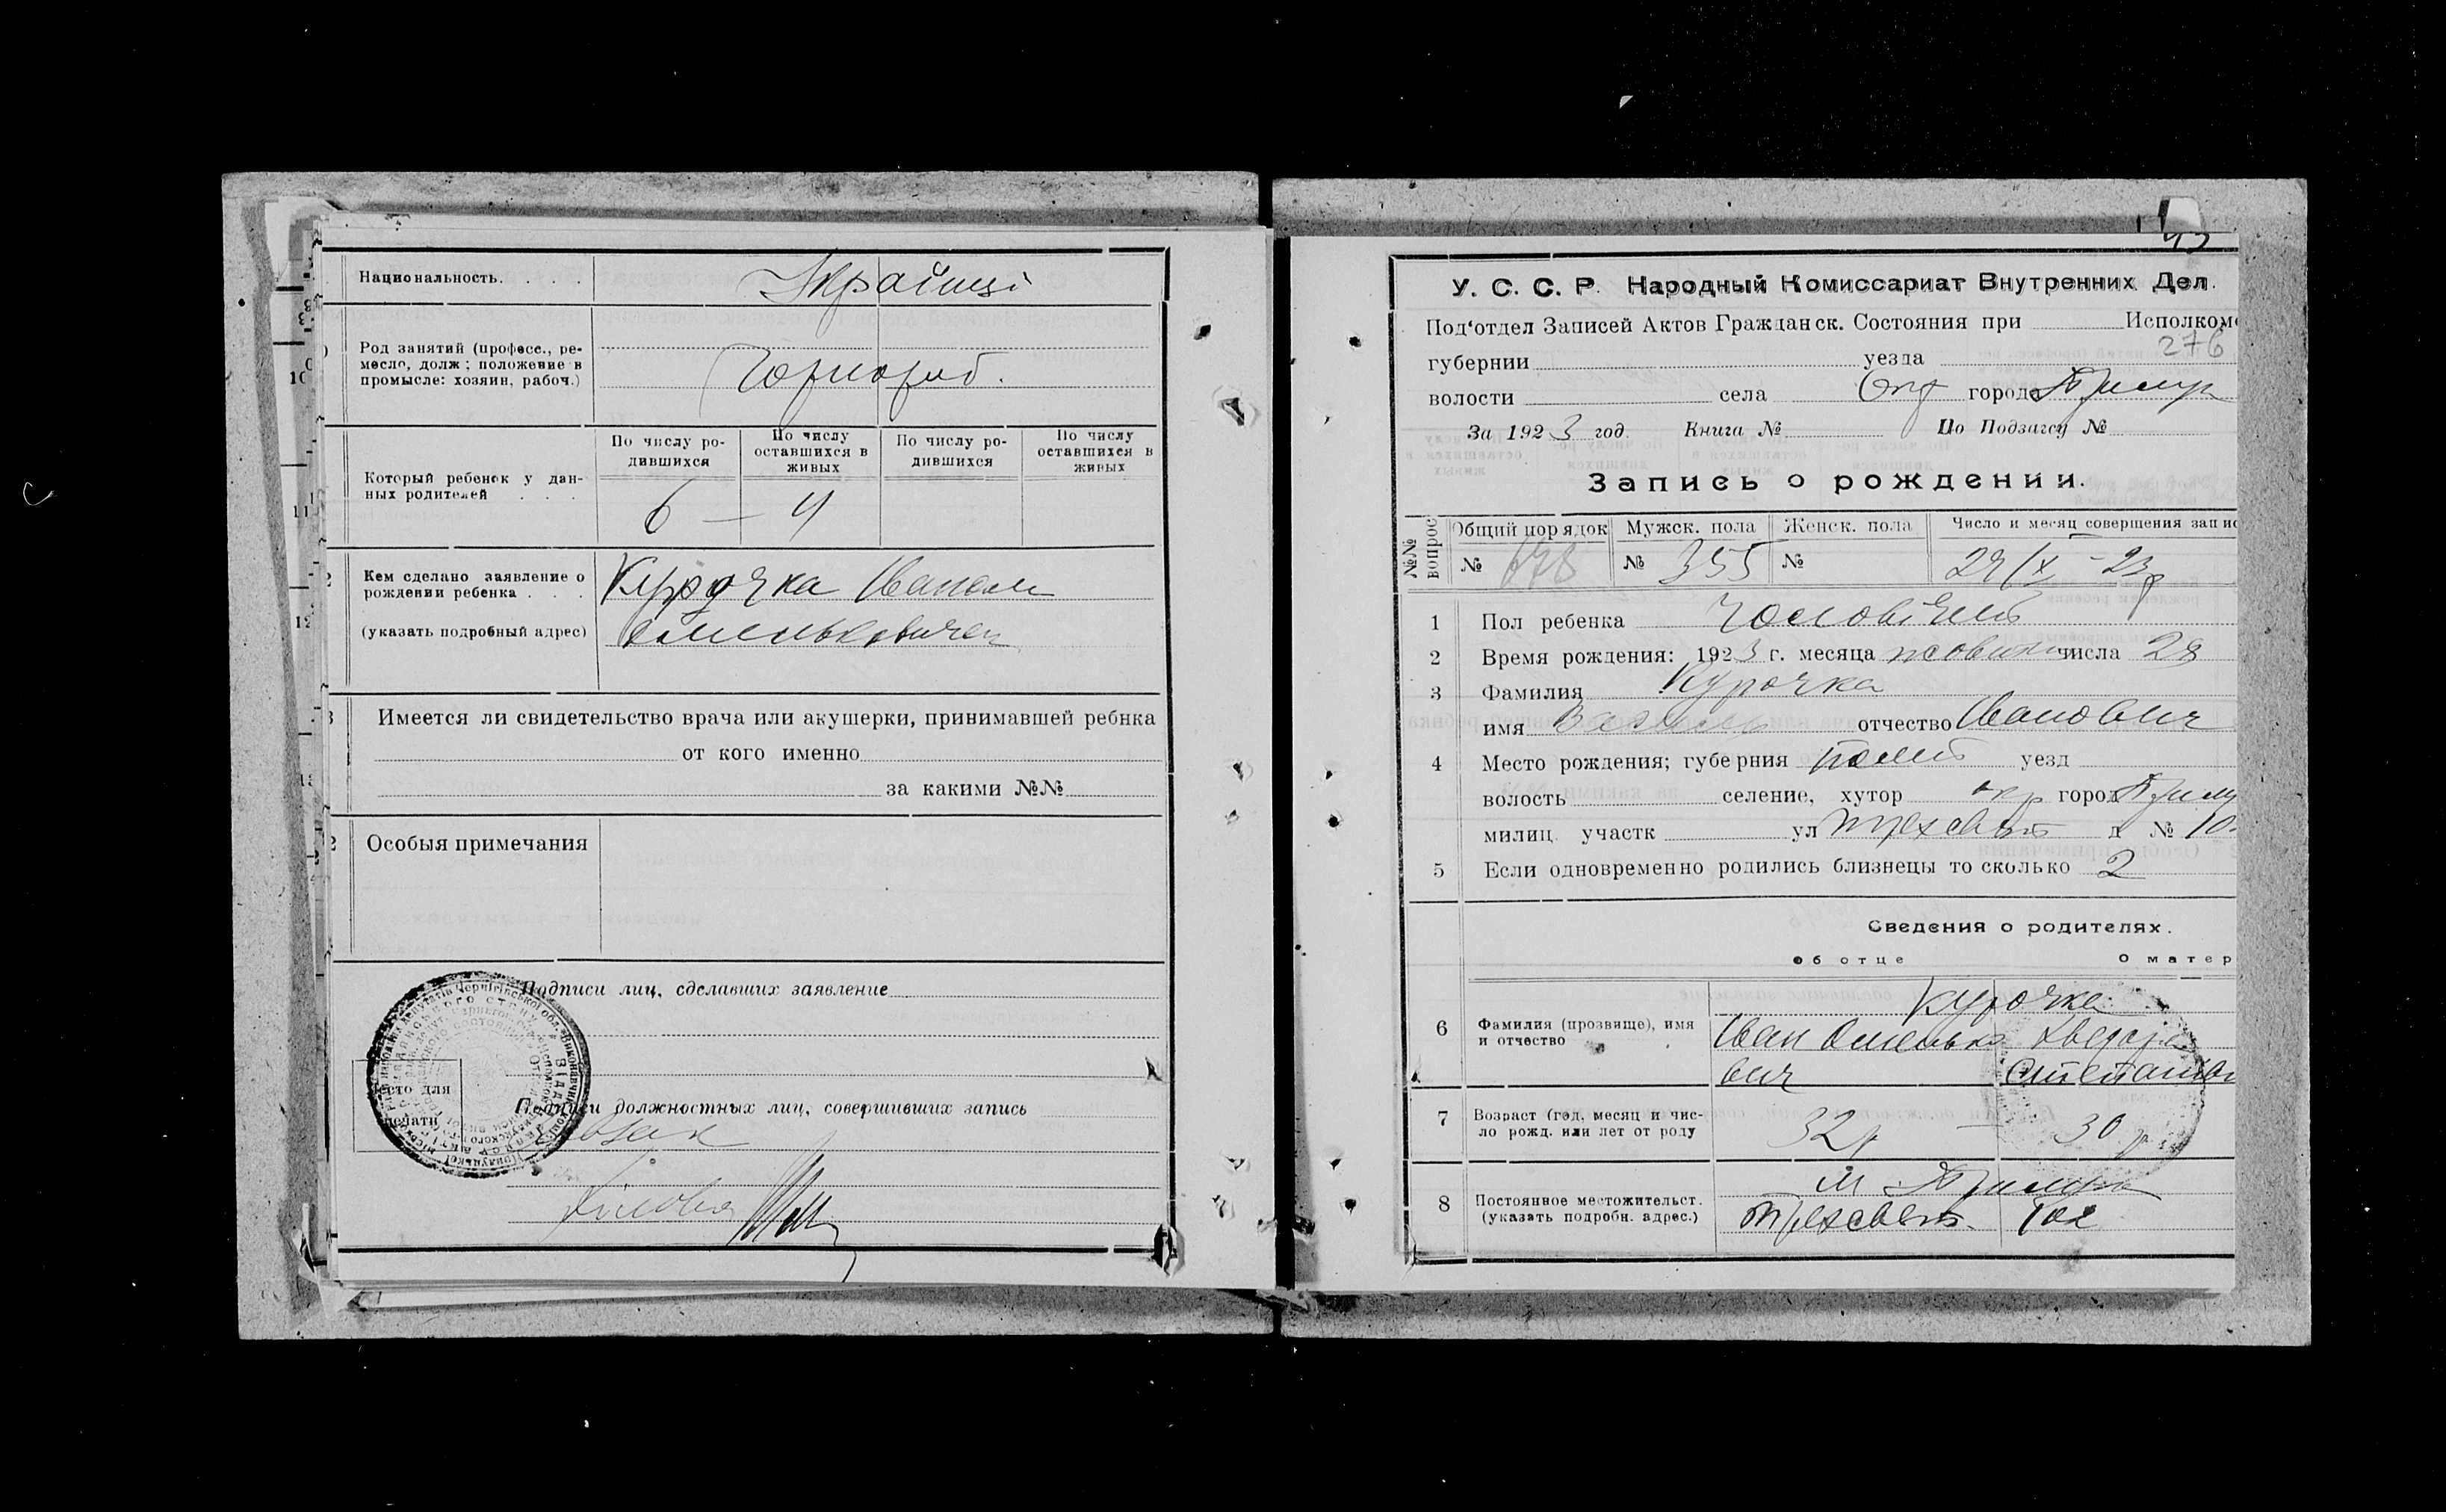 Национальность. . . . .
Українці
Род занятий (професс., ре-
месло, долж; положение в
промысле: хозяин, рабоч.)
Чорнороб.
Который ребенок у дан-
ных родителей . . .
По числу ро-
дившихся
По числу
оставшихся в
живых
По числу ро-
дившихся
По числу
оставшихся в
живых
6 — 4
Кем сделано заявление о
рождении ребенка . . .
(указать подробный адрес)
Курочка Иваном
Омельковичем
Имеется ли свидетельство врача или акушерки, принимавшей ребнка
от кого именно
за какими №№
Особыя примечания
Подписи лиц, сделавших заявление
Место для
печати
Подписи должностных лиц, совершивших запись
Діловод
У. С. С. Р. Народный Комиссариат Внутренних Дел.
Под'отдел Записей Актов Гражданск. Состояния при Исполкоме
276
губернии уезда
волости села Окр города Прилук
За 1923 год. Книга № По Подзагсу №
Запись о рождении.
№№ вопрос
Общий порядок Мужск. пола Женск. пола Число и месяц совершения запис
№ 678 № 355 № 29/X - 23р
1 Пол ребенка Чоловічий
2 Время рождения: 1923 г. месяца жовтня числа 28
3 Фамилия Курочка
имя Василь отчество Иванович
4 Место рождения; губерния Полт уезд
волость селение, хутор окр город Прилук
милиц. участк ул Трехсвят д № 10
5 Если одновременно родились близнецы то сколько 2
Сведения о родителях.
об отце О матер
6 Фамилия (прозвище), имя
и отчество
Курочка
Иван Омелько Хведора
вич Степанов
7 Возраст (год, месяц и чис-
ло рожд. или лет от роду
32р — 30 р.
8 Постоянное местожительст.
(указать подробн. адрес.)
м Прилука
Трехсвят. 10